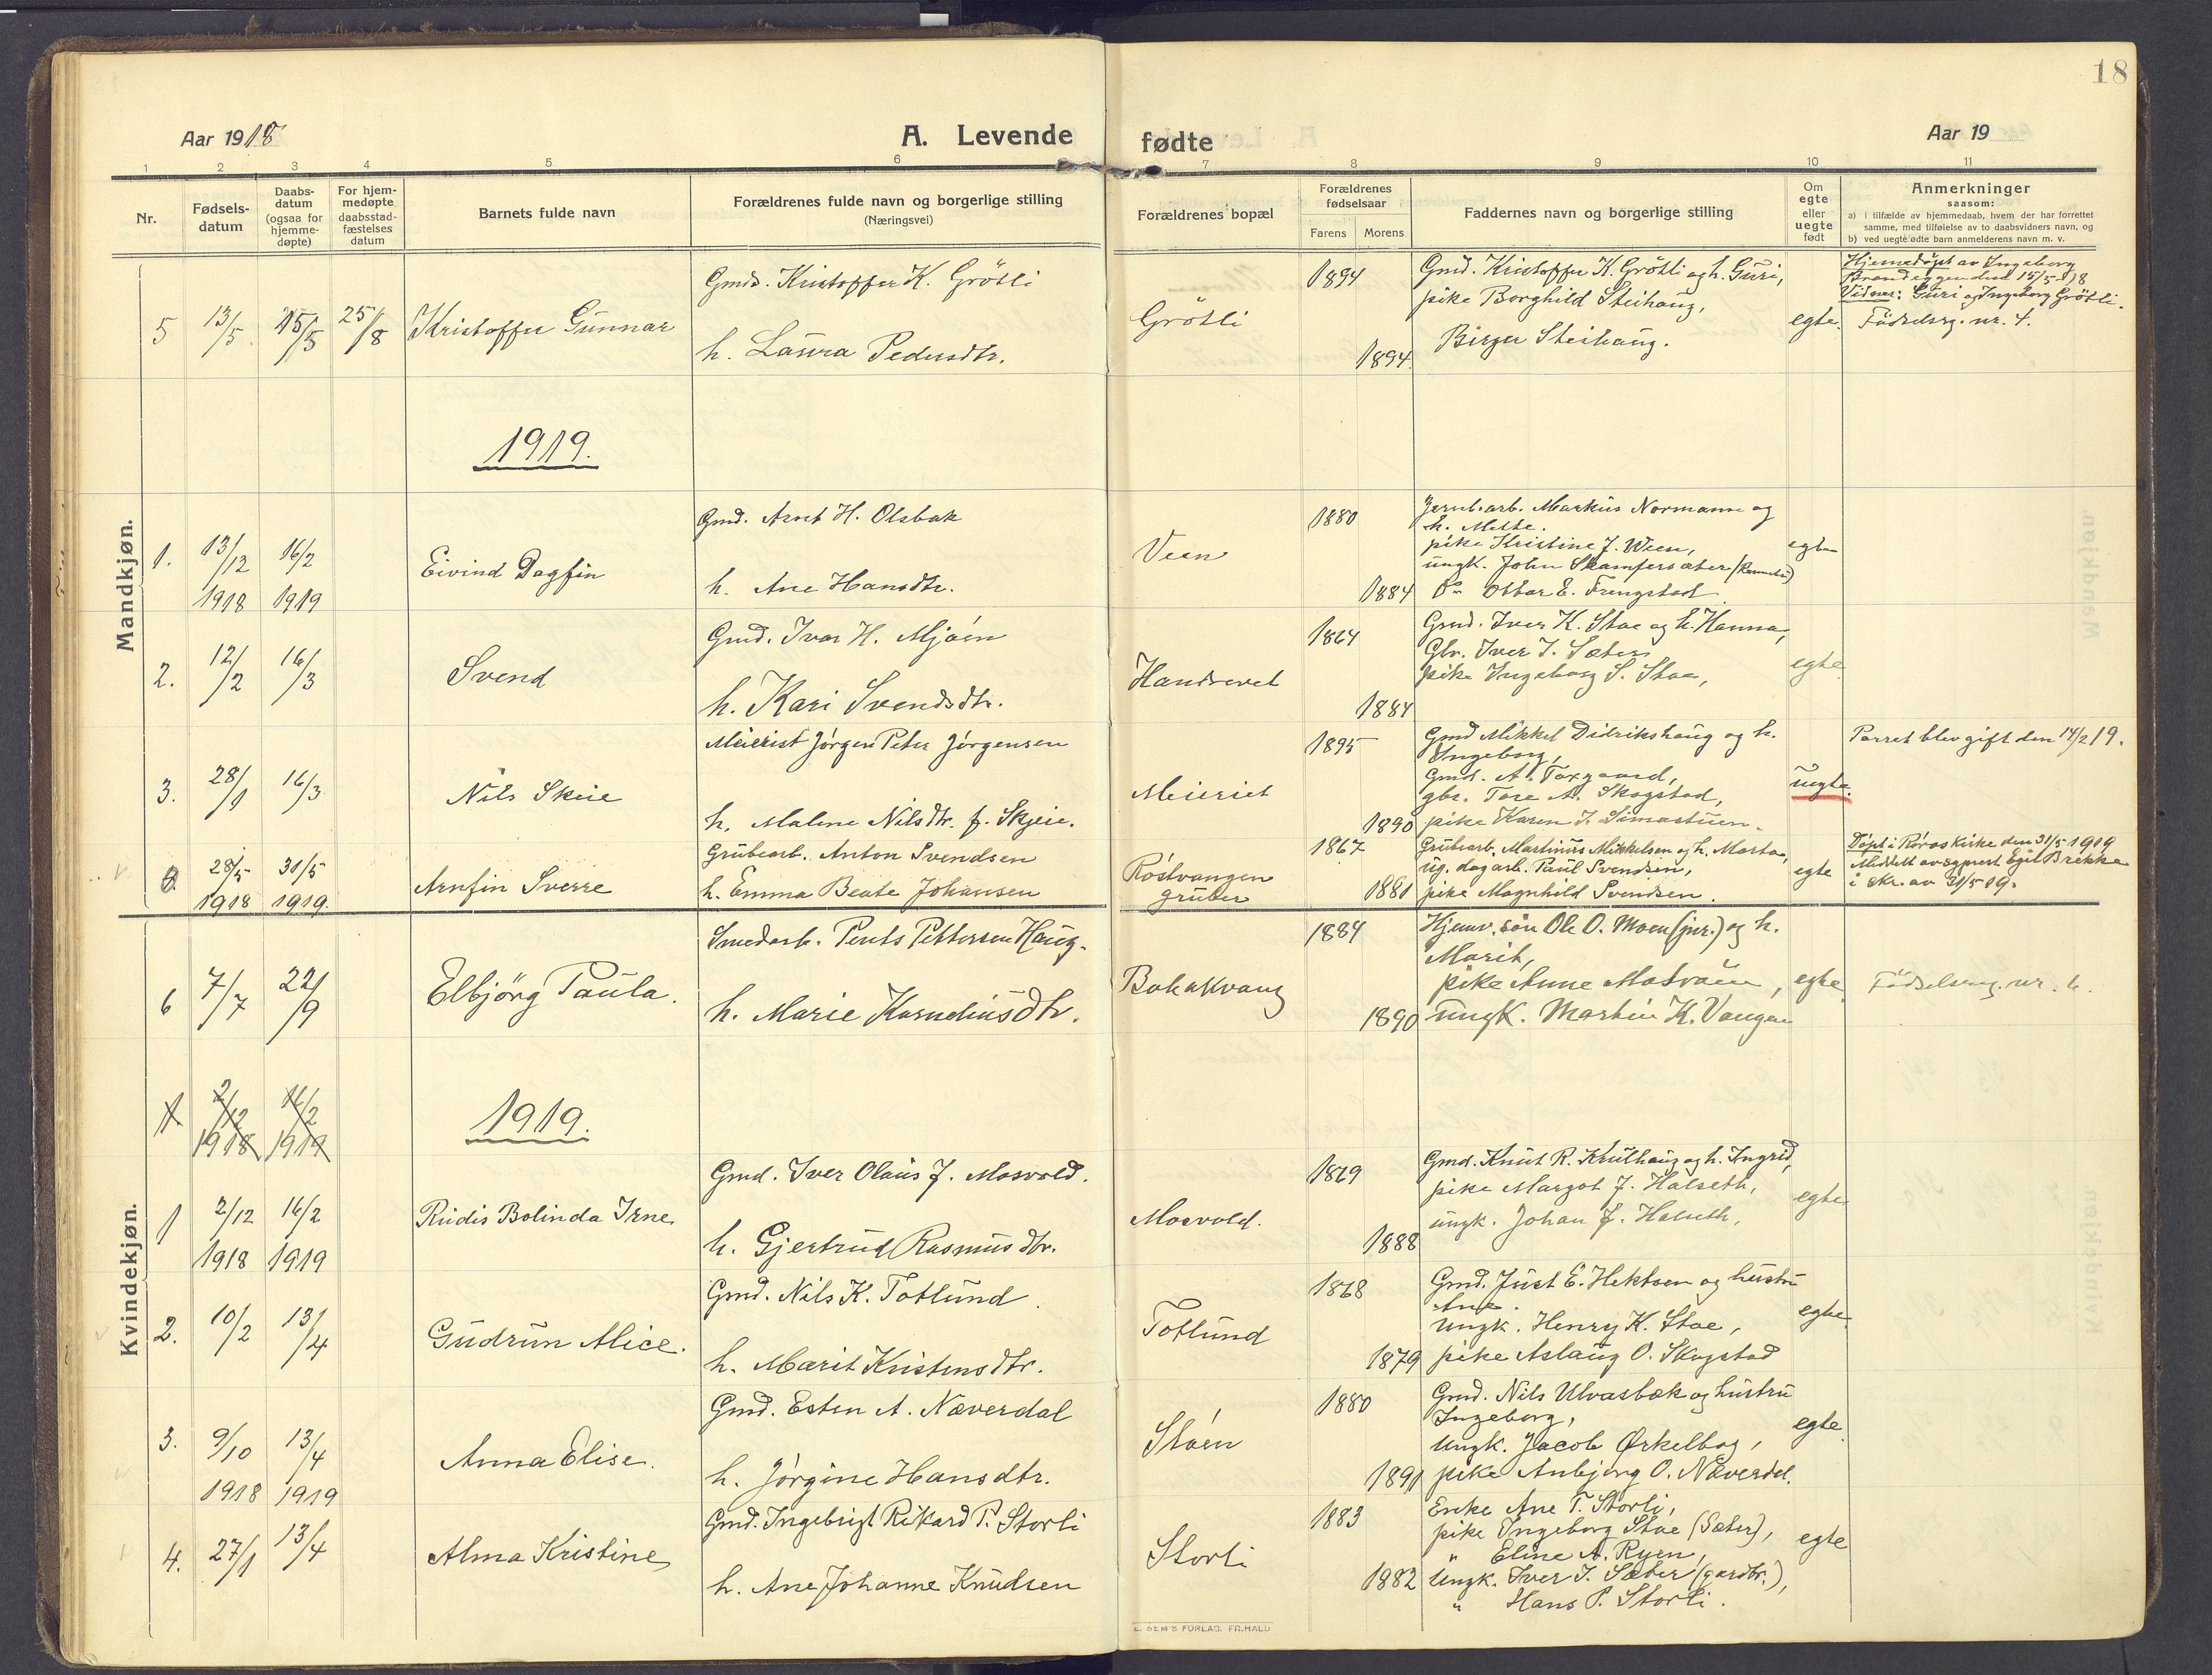 18
Aar 1918
A. Levende
fødte
Aar 19
1 2 3 4 5 6 7 8 9 10 11
Nr.
Fødsels-
datum
Daabs-
datum
(ogsaa for
hjemme-
døpte)
For hjem-
medøpte
daabsstad-
fæstelses
datum
Barnets fulde navn
Forældrenes fulde navn og borgerlige stilling
(Næringsvei)
Forældrenes bopæl
Forældrenes
fødselsaar
Farens Morens
Faddernes navn og borgerlige stilling
Om
egte
eller
uegte
født
Anmerkninger
saasom:
a) i tilfælde av hjemmedaab, hvem der har forrettet
samme, med tilføielse av to daabsvidners navn, og
b) ved uegte fødte barn anmelderens navn m. v.
Mandkjøn.
5 13/5 15/5 25/8 Kristoffer Gunnar
Gmd. Kristoffer K. Grötli
h. Laura Pedersdtr.
Grötli
1894
1894
Gmd. Kristoffer K. Grötli og h. Guri,
pike Borghild Steihaug,
Birger Steihaug.
egte.
Hjemmedöpt av Ingeborg
Brandeggen den 15/5-18
Vidner: Guri og Ingeborg Grötli.
Födselsrg. nr. 4.
1919.
1. 13/12 1918 16/2 1919
Eivind Dagfin
Gmd. Arnt H. Olsbak
h. Ane Hansdtr.
Veen
1880
1884
Jernb.arb. Markus Normann og
h. Mette.
pike Kristine J. Ween,
ungk. John Skamfersæter
Do Ottar E. Frengstad
egte
2. 12/2 16/3
Svend
Gmd. Ivar H. Mjóen
h. Kari Svendsdtr.
Handrevet
1864
1884
Gmd. Iver K. Stoe og h. Hanna,
Gbr. Iver I. Sæter
pike Ingeborg S. Stoe,
egte
3. 28/1 16/3
Nils Skeie
Meierist Jörgen Peter Jörgensen
h. Malene Nilsdtr. f. Skjeie.
Meieriet
1895
1890
Gmd Mikkel Didrikshaug og h.
Ingeborg,
Gmd. A. Torgaard,
gbr. Tore A. Skogstad,
pike Karen J. Simastuen.
uegte.
Parret blev gift den 14/2 19.
28/5 1918 31/5 1919.
Arnfin Sverre
Grubearb. Anton Svendsen
h. Emma Beate Johansen
Röstvangen
gruber
1867
1881
Grubearb. Martinus Mikkelsen og h. Marta,
ug. dagarb. Paul Svendsen,
pike Magnhild Svendsen.
egte
Döpt i Röros kirke den 31/5 1919
Meddelt av sogneprest Egil Brekke
i skr. av 31/5 19.
Kvindekjøn.
6 7/7 22/9
Elbjörg Paula.
Smedarb. Pents Pettersen Haug.
h. Marie Korneliusdtr.
Bakakvang
1884
1890
Hjemv. sön Ole O. Moen (jnr.) og h.
Marit,
pike Anne Mostróen,
ungk. Martin K. Vangen
egte
Födselsrg. nr. 6.
1 2/12 1918 16/2 1919
1919.
1 2/12 1918 16/2 1919
Rudis Bolinda Irne
Gmd. Iver Olaus J. Mosvold.
h. Gjertrud Rasmusdtr.
Mosvold.
1879
1888
Gmd. Knut R. Krulhaug og h. Ingrid,
pike Margot J. Halseth,
ungk. Johan J. Halseth,
egte
2. 10/2 13/4
Gudrun Alice.
Gmd. Nils K. Totlund.
h. Marit Kristensdtr.
Totlund
1868
1879
Gmd. Just E. Hektoen og hustru
Ane.
Ungk. Henry K. Stoe,
pike Aslaug O. Skogstad
egte
3. 9/10 1918 13/4 1919
Anna Elise.
Gmd. Esten A. Næverdal
h. Jörgine Hansdtr.
Stóen
1880
1891
Gmd. Nils Ulvasbæk og hustru
Ingeborg,
Ungk. Jacob Ørkelbog,
pike Anbjørg O. Næverdal.
egte
4. 27/1 13/4
Alma Kristine
Gmd. Ingebrigt Rikard P. Storli
h. Ane Johanne Knudsen
Storli
1883
1882
Enke Ane T. Storli,
pike Ingeborg Stoe (Sæter),
" Eline A. Ryen,
Ungk. Iver I. Sæter (gardbr.),
" Hans P. Storli.
egte
E. SEM'S FORLAG. FR.HALD